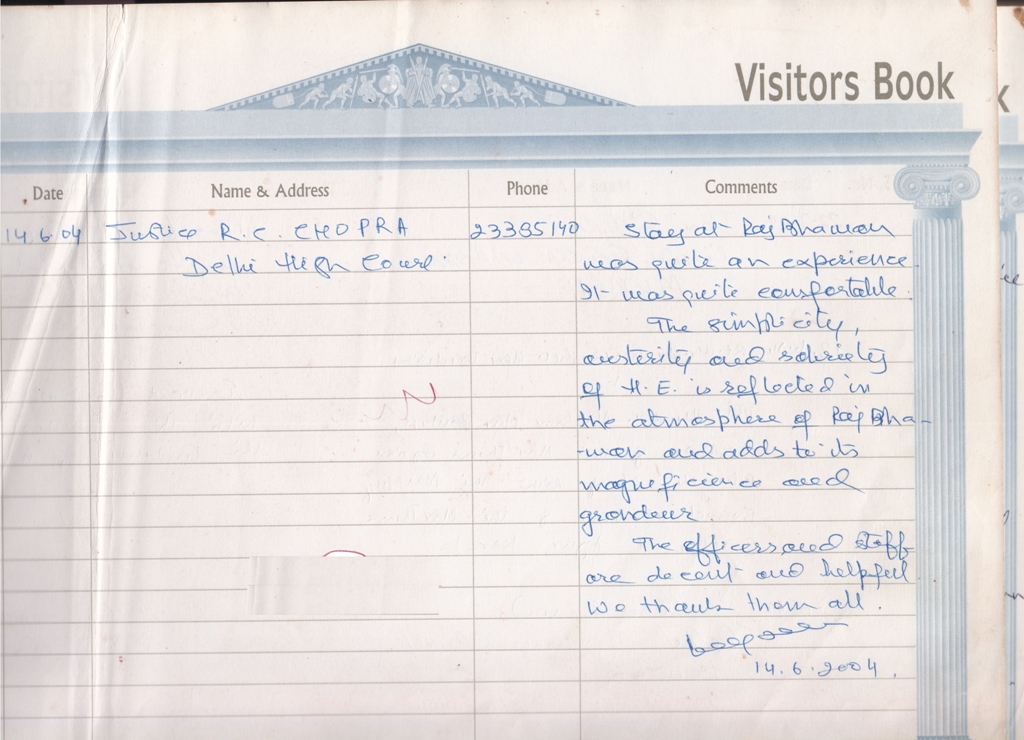 Visitors Book
Date Name & Address Phone Comments
14.6.04 Justice R.C. CHOPRA 23385140 Stay at Raj Bhawan
Delhi High Court. was quite an experience.
It was quite comfortable.
The simplicity,
austerity and sobriety
of H.E. is reflected in
the atmosphere of Raj Bha-
-wan and adds to its
magneficience and
grandeur.
The officers and staff
are decent and helpful
We thank them all.
14.6.2004.